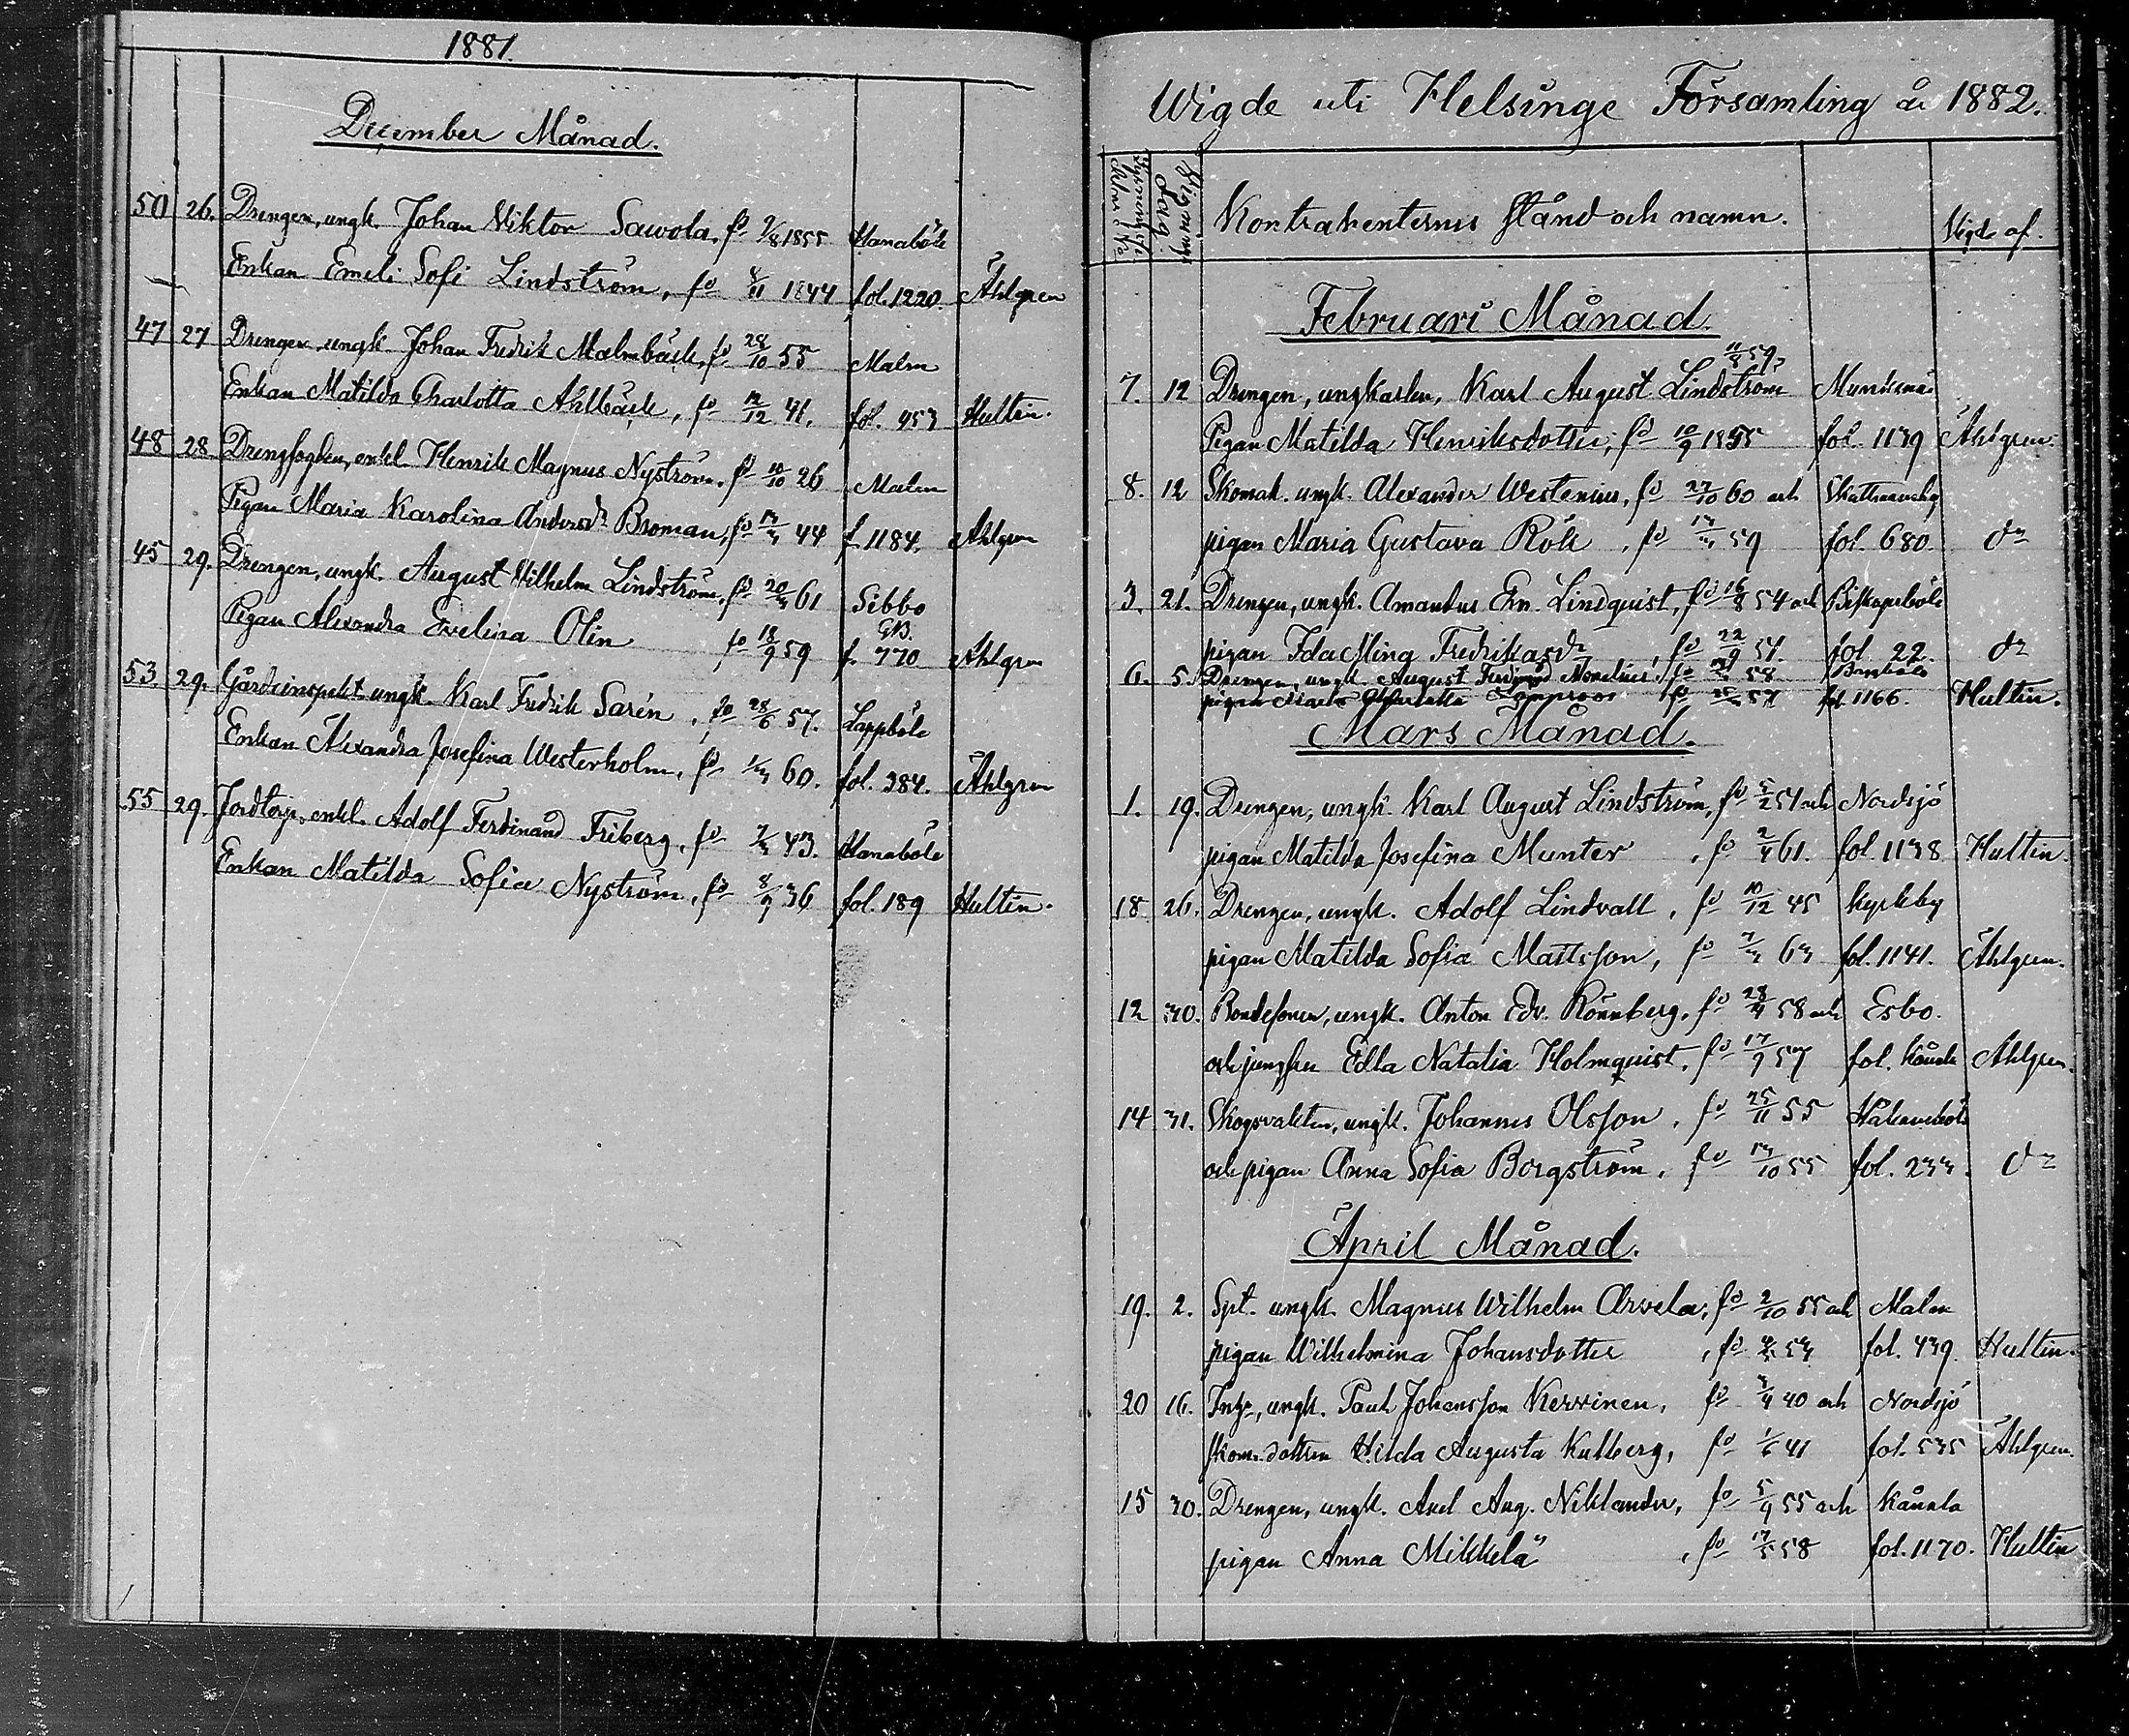 1881.
December Månad.
50 26. Drengen, ungk. Johan Viktor Sawola, fd 9/8 1855 Hanaböle
Enkan Emeli Sofi Lindström, fd 8/11 1844 fol. 1220. Åhlgren
47 27 Drengen, ungk. Johan Fredrik Malmbäck, fd 28/10 55 Malm
Enkan Matilda Charlotta Ahlbäck, fd 12/12 41. fol. 453 Hultin.
48 28. Drengfogden, enkl. Henrik Magnus Nyström, fd 10/10 26 Malm
Pigan Maria Karolina Andersdr Broman, fd 13/3 44 f. 1184. Åhlgren
45 29. Drengen, ungk. August Vilhelm Lindström, fd 20/3 61 Sibbo
G.B.
Pigan Alexandra Evelina Olin fd 18/9 59 f. 770 Åhlgren
53. 29. Gårdsinspekt. ungk. Karl Fredrik Sarén, fd 28/6 57. Lappböle
Enkan Alexandra Josefina Westerholm, fd 60. fol. 384. Åhlgren
55 29. Jordtorp. enkl. Adolf Ferdinand Friberg, fd 7/3 43. Hanaböle
Enkan Matilda Sofia Nyström, fd 8/9 36 fol. 189 Hultin.
Wigde uti Helsinge Församling år 1882.
Kontrahenternes stånd och namn. Vigde af.
Februari Månad.
11/8 59.
7. 12 Drengen, ungkarlen, Karl August Lindström Munksnäs
Pigan Matilda Henriksdotter, fd 10/9 1855 fol. 1139 Åhlgren.
8. 12 Skomak. ungk. Alexander Westenius, fd 27/10 60 och
pigan Maria Gustava Rök, fd 59 fol. 680. do
3. 21. Drengen, ungk. Amandus Em. Lindquist, fd 16/8 54 och Biskopsböle
pigan Ida Mina Fredriksdr, fd 22/9 51. fol. 22. do
6. 5. Drengen, ungk. August Ferdinand fd 58
pigan Charlotta fd 57 fol. 1166. Hultin.
Mars Månad.
1. 19. Drengen, ungk. Karl August Lindström, fd 5/2 51 och Nordsjö
pigan Matilda Josefina Munter, fd 2/4 61. fol. 1138 Hultin.
18 26. Drengen, ungk. Adolf Lindvall, fd 10/12 45 Kyrkby
pigan Matilda Sofia Mattsson, fd 7/3 63 fol. 1141. Åhlgren.
12 30. Bondesonen, ungk. Anton Edv. Rönnberg, fd 28/4 58 och Esbo.
och jungfru Edla Natalia Holmquist, fd 17/9 57 fol. Åhlgren.
14 31. Skogsvakten, ungk. Johannes Olsson, fd 25/11 55 Håkansböle
och pigan Anna Sofia Borgström, fd 13/10 55 fol. 233. do
April Månad.
19. 2. Spt. ungk. Magnus Wilhelm Arvela, fd 2/10 55 och Malm
pigan Wilhelmina Johansdotter, fd 53 fol. 439. Hultin.
20 16. Inhys, ungk. Paul Johansson Kervinen, fd 3/4 40 och Nordsjö
skom. dottren Hilda Augusta Kullberg, fd 1/6 41 fol. 535 Åhlgren.
15 30. Drengen, ungk. Axel Aug. Niklander, fd 5/9 55 och Kånala
pigan Anna Mikkelä, fd 17/5 58 fol. 1170. Hultin